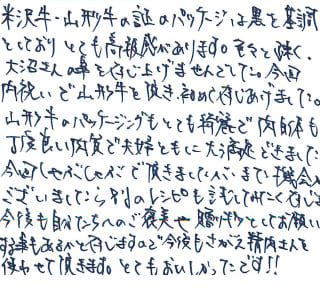 米沢牛・山形牛の証のパッケージは黒を基調
としており とても高級感があります。色々と疎く、
大沼さんの事を存じ上げませんでした。今回
内祝いで山形牛を頂き、初めて存じあげました。
山形牛のパッケージングもとても綺麗で肉自体も
丁度良い肉質で夫婦ともに大満足できました
今回しゃぶしゃぶで頂きましたがまた機会が
ございましたら別のレシピも試してみたく存じます
今後も自分たちへのご褒美や贈り物としてお願い
する事もあるかと存じますので今後もさがえ精肉さんを
使わせて頂きます。とてもおいしかったです!!